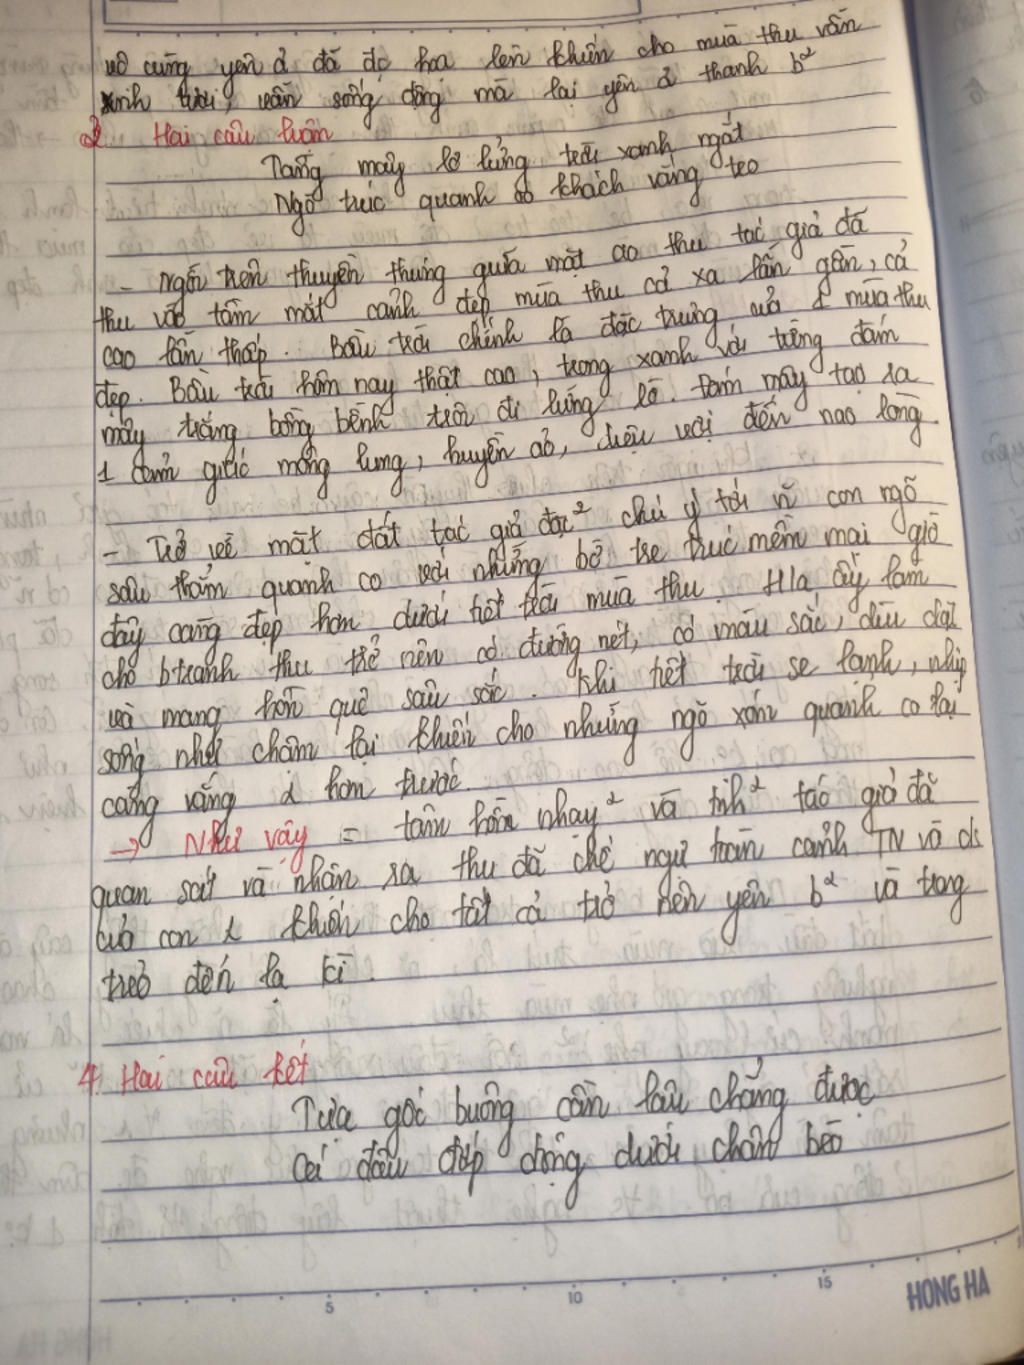 vô cùng yên ả đã đc họa lên khiến cho mùa thu vẫn
xinh tươi, vẫn sống động mà lại yên ả thanh b²
3. Hai câu luận
Tầng mây lơ lửng trời xanh ngắt
Ngõ trúc quanh co khách vắng teo
- Ngồi trên thuyền thưng giữa mặt ao thu tác giả đã
thu vào tầm mắt cảnh đẹp mùa thu cả xa lẫn gần, cả
cao lẫn thấp. Bầu trời chính là đặc trưng của 1 mùa thu
đẹp. Bầu trời hôm nay thật cao, trong xanh với từng đám
mây trắng bồng bềnh trôi đi lửng lơ. Đám mây tạo ra
1 cảm giác mông lung, huyền ảo, diệu vợi đến nao lòng.
- Trở về mặt đất tác giả đặc² chú ý tới n~ con ngõ
sâu thẳm quanh co với những bờ tre trúc mềm mại giờ
đây càng đẹp hơn dưới tiết trời mùa thu. H/a ấy làm
cho b.tranh thu trở nên có đường nét, có màu sắc, dìu dặt
và mang hồn quê sâu sắc. Khi tiết trời se lạnh, nhịp
sống như chậm lại khiến cho những ngõ xóm quanh co lại
càng vắng ả hơn trước.
→ Như vậy = tâm hồn nhạy² và tinh² tác giả đã
quan sát và nhận ra thu đã chế ngự toàn cảnh TN và ds
của con ng khiến cho tất cả trở nên yên b² và trong
trẻo đến lạ kì.
4. Hai câu kết
Tựa gối buông cần lâu chẳng được
Cá đâu đớp động dưới chân bèo
5 10 15
HONG HA